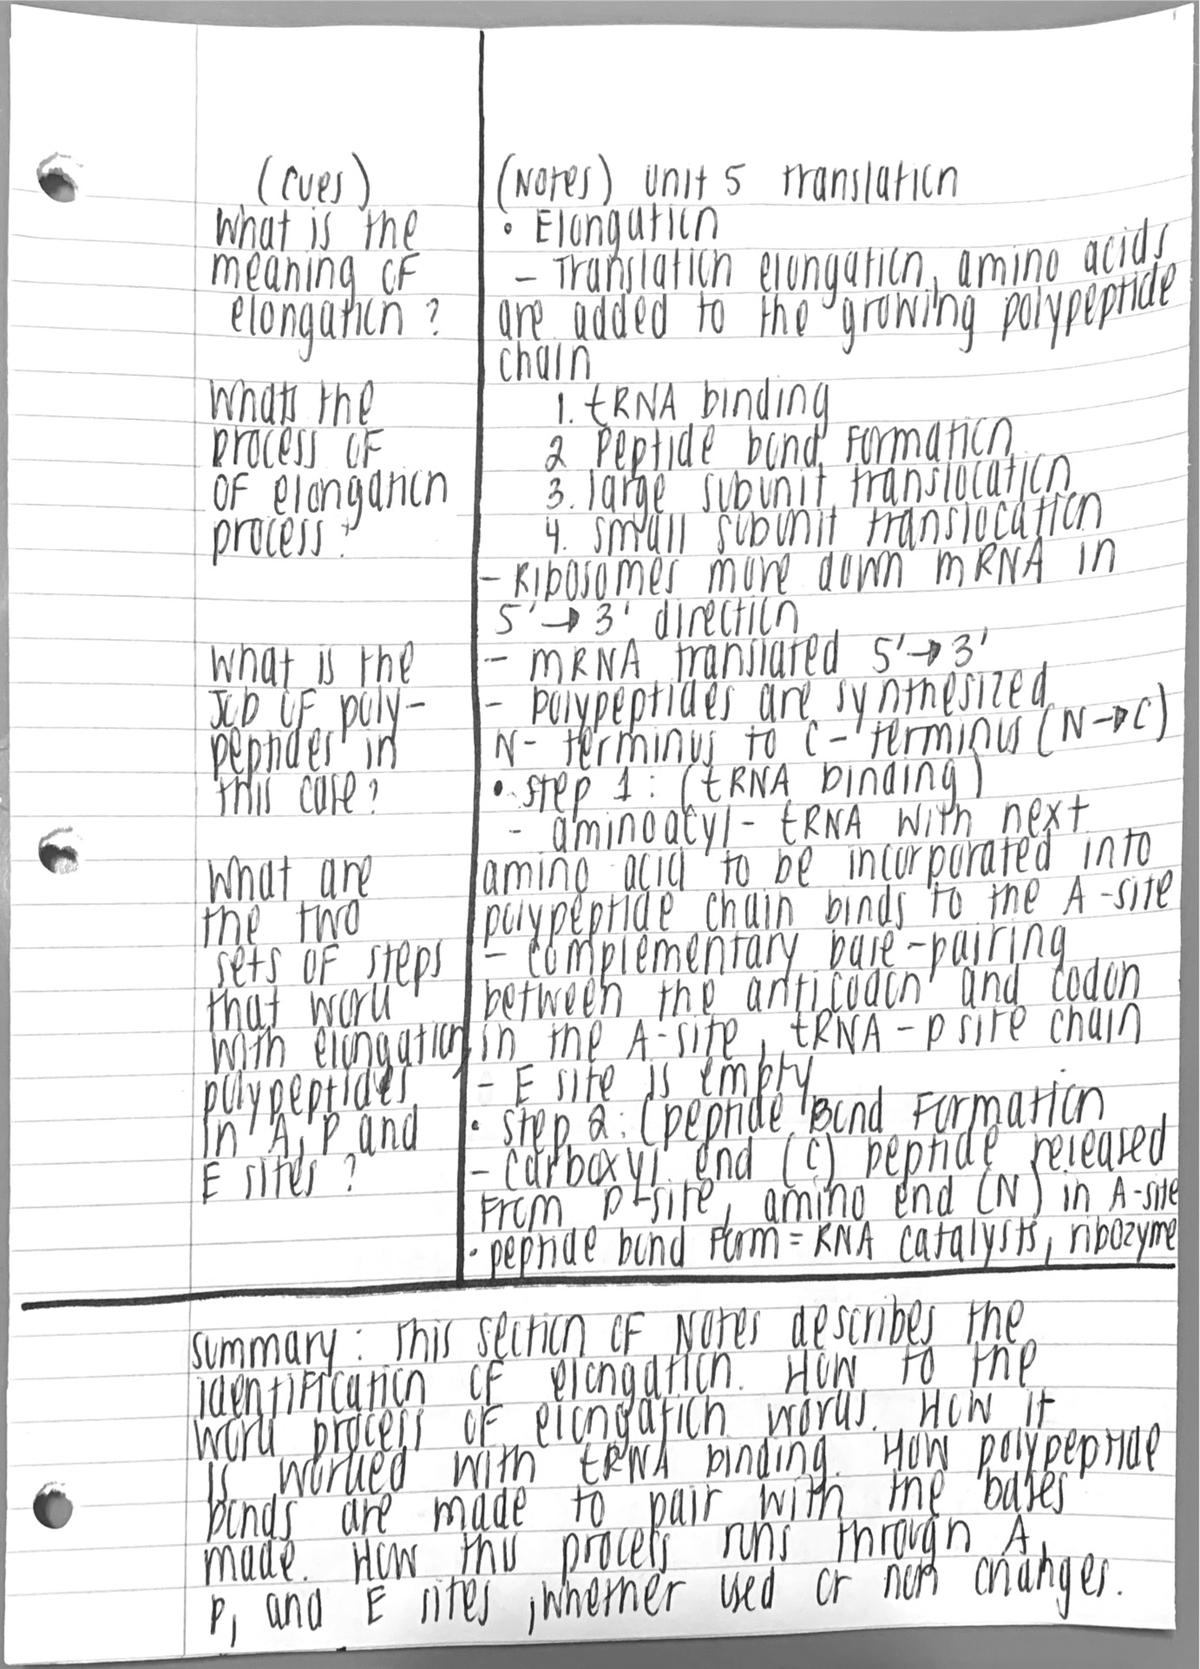 (cues)
What is the
meaning of
elongation?
Whats the
process of
of elongation
process?
What is the
Job of poly-
peptides in
this case?
What are
the two
sets of steps
that work
with elongation
polypeptides
in A, P and
E sites?
(Notes) Unit 5 translation
• Elongation
- Translation elongation, amino acids
are added to the growing polypeptide
chain
1. tRNA binding
2 Peptide bond formation
3. large subunit translocation
4. small subunit translocation
- Ribosomes move down mRNA in
5' → 3' direction
- mRNA translated 5'→3'
- polypeptides are synthesized
N- terminus to C- terminus (N→C)
• Step 1: (tRNA binding)
- aminoacyl- tRNA with next
amino acid to be incorporated into
polypeptide chain binds to the A-site
- complementary base-pairing
between the anticodon and codon
in the A-site, tRNA - p site chain
- E site is empty
• Step 2: (peptide Bond Formation
- carboxyl end (C) peptide released
from p-site, amino end (N) in A-site
• peptide bond form = RNA catalysts, ribozyme
summary: This section of Notes describes the
identification of elongation. How to the
word process of elongation works. How it
is worked with tRNA binding. How polypeptide
bonds are made to pair with the bases
made. How this process runs through A,
P, and E sites, whether used or non changes.